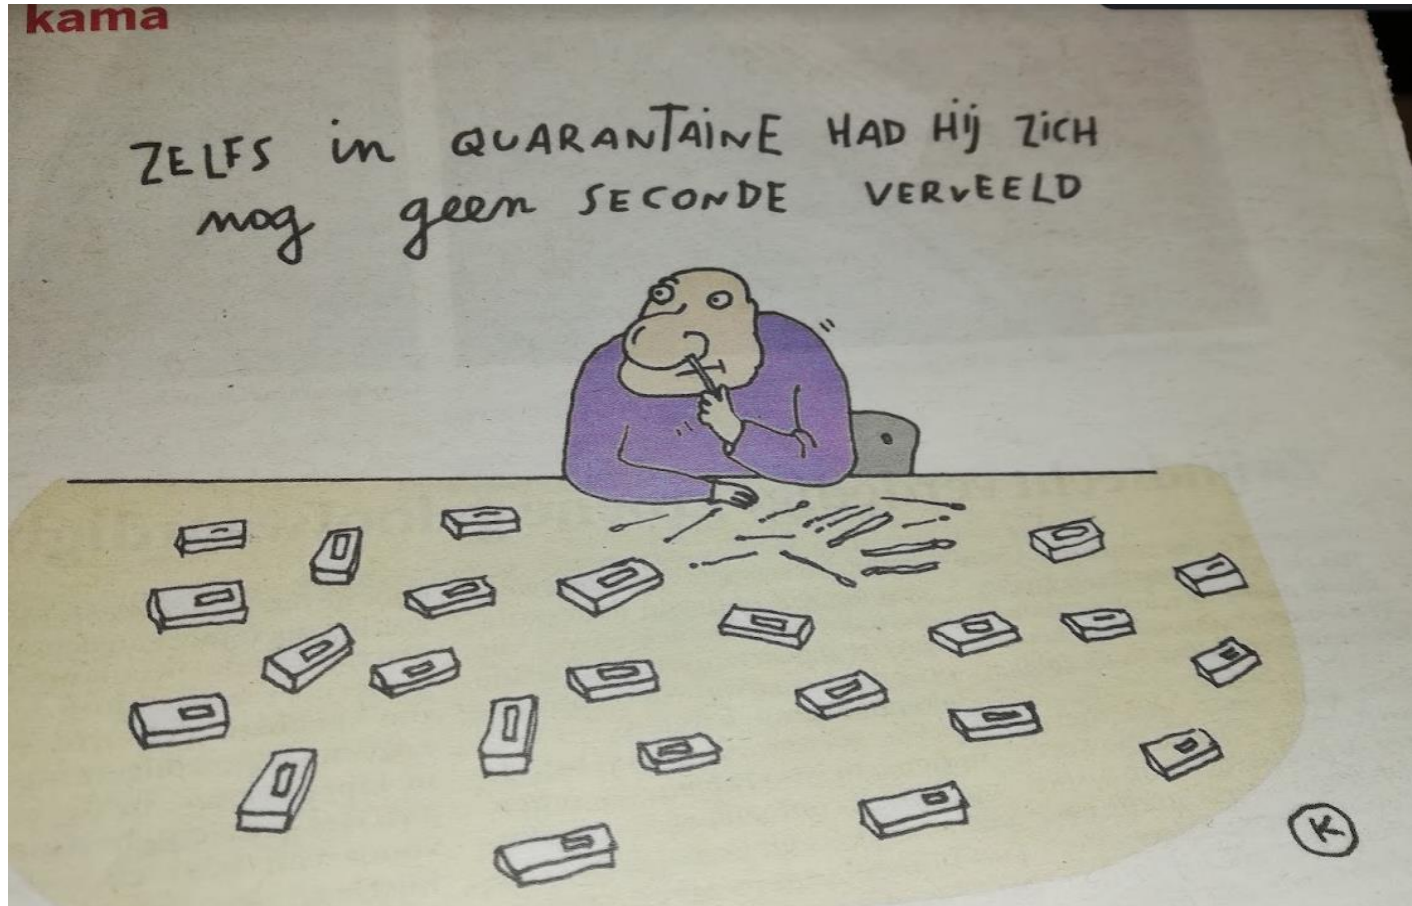 kama
ZELFS in QUARANTAINE HAD HIJ ZICH
nog geen SECONDE VERVEELD
K